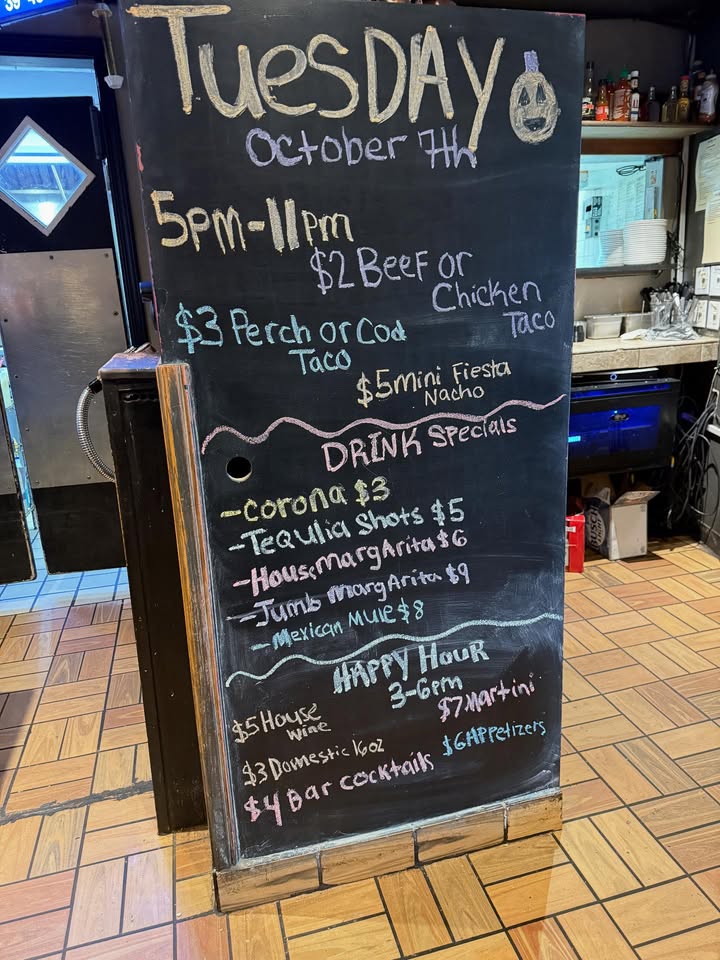 TuesDAy
October 7th
5pm-11pm
$2 Beef or
Chicken
Taco
$3 Perch or Cod
Taco
$5 mini Fiesta
Nacho
DRINK Specials
-Corona $3
-Tequlia Shots $5
-House margArita $6
-Jumb margArita $9
-Mexican Mule $8
HAPPY HOUR
3-6pm
$5 House
Wine
$7 Martini
$3 Domestic 16oz
$6 Appetizers
$4 Bar cocktails